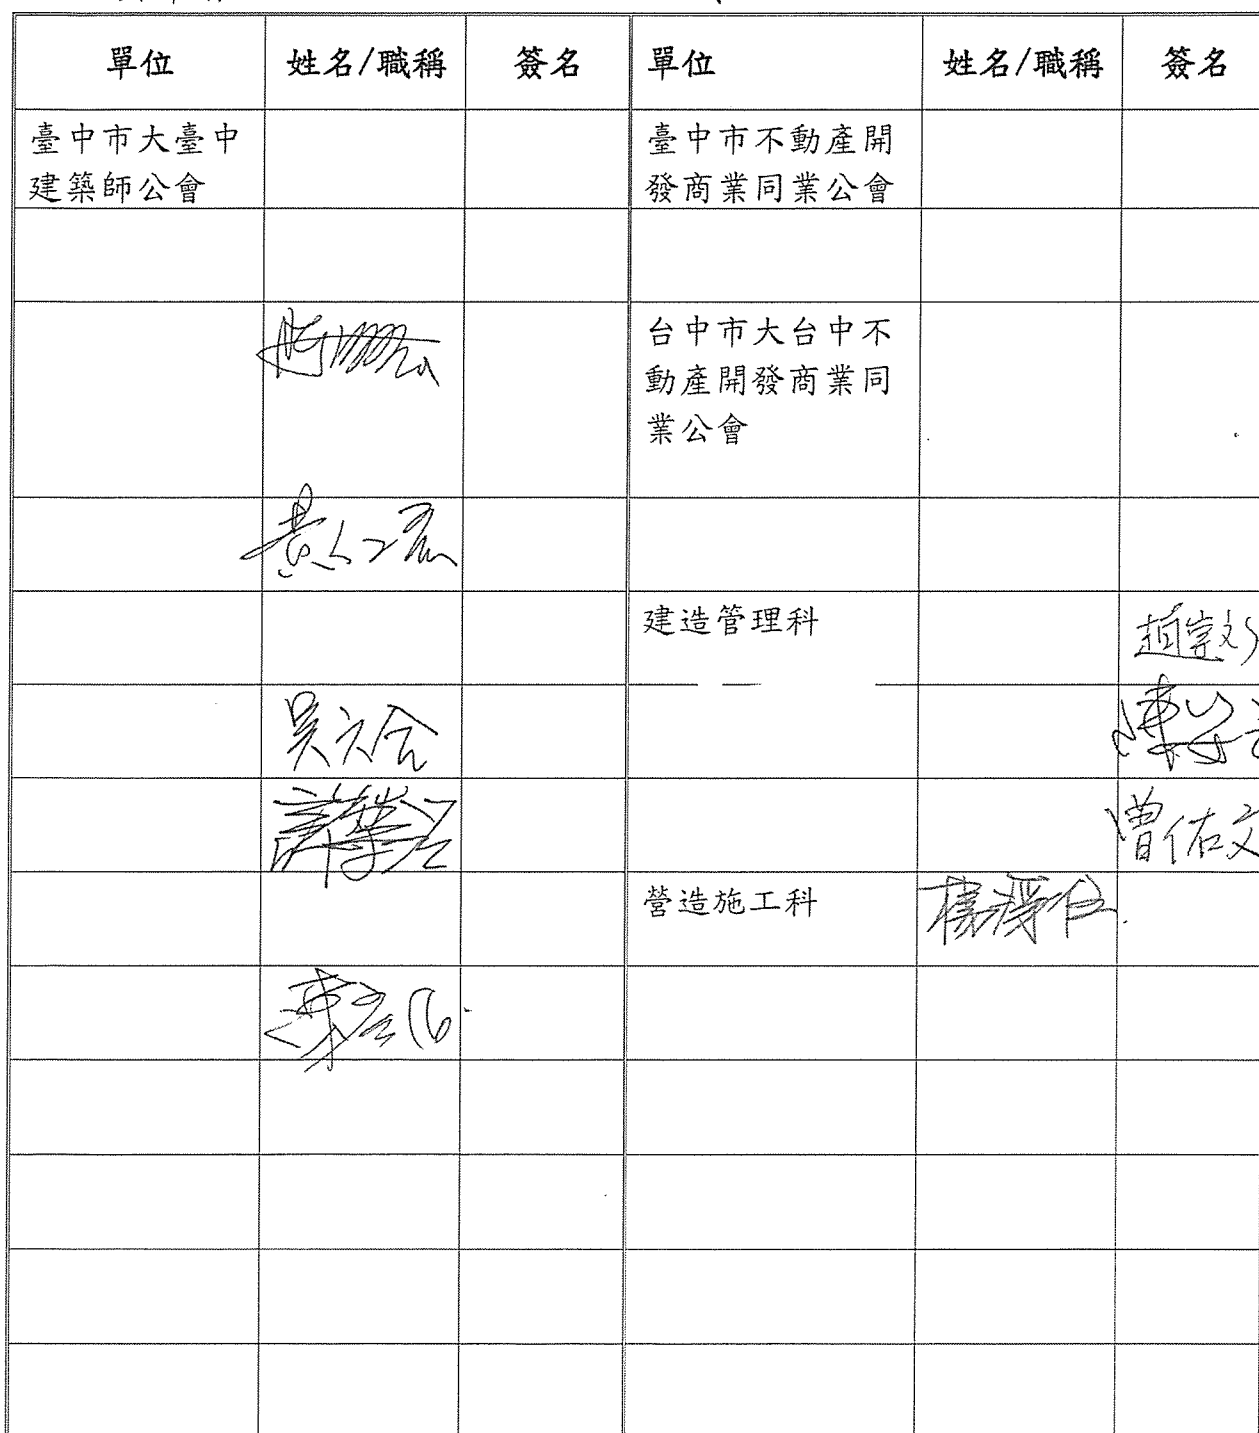 單位 姓名/職稱 簽名 單位 姓名/職稱 簽名
臺中市大臺中 臺中市不動產開
建築師公會 發商業同業公會
台中市大台中不
動產開發商業同
業公會
建造管理科
吳六合
曾佑文
營造施工科